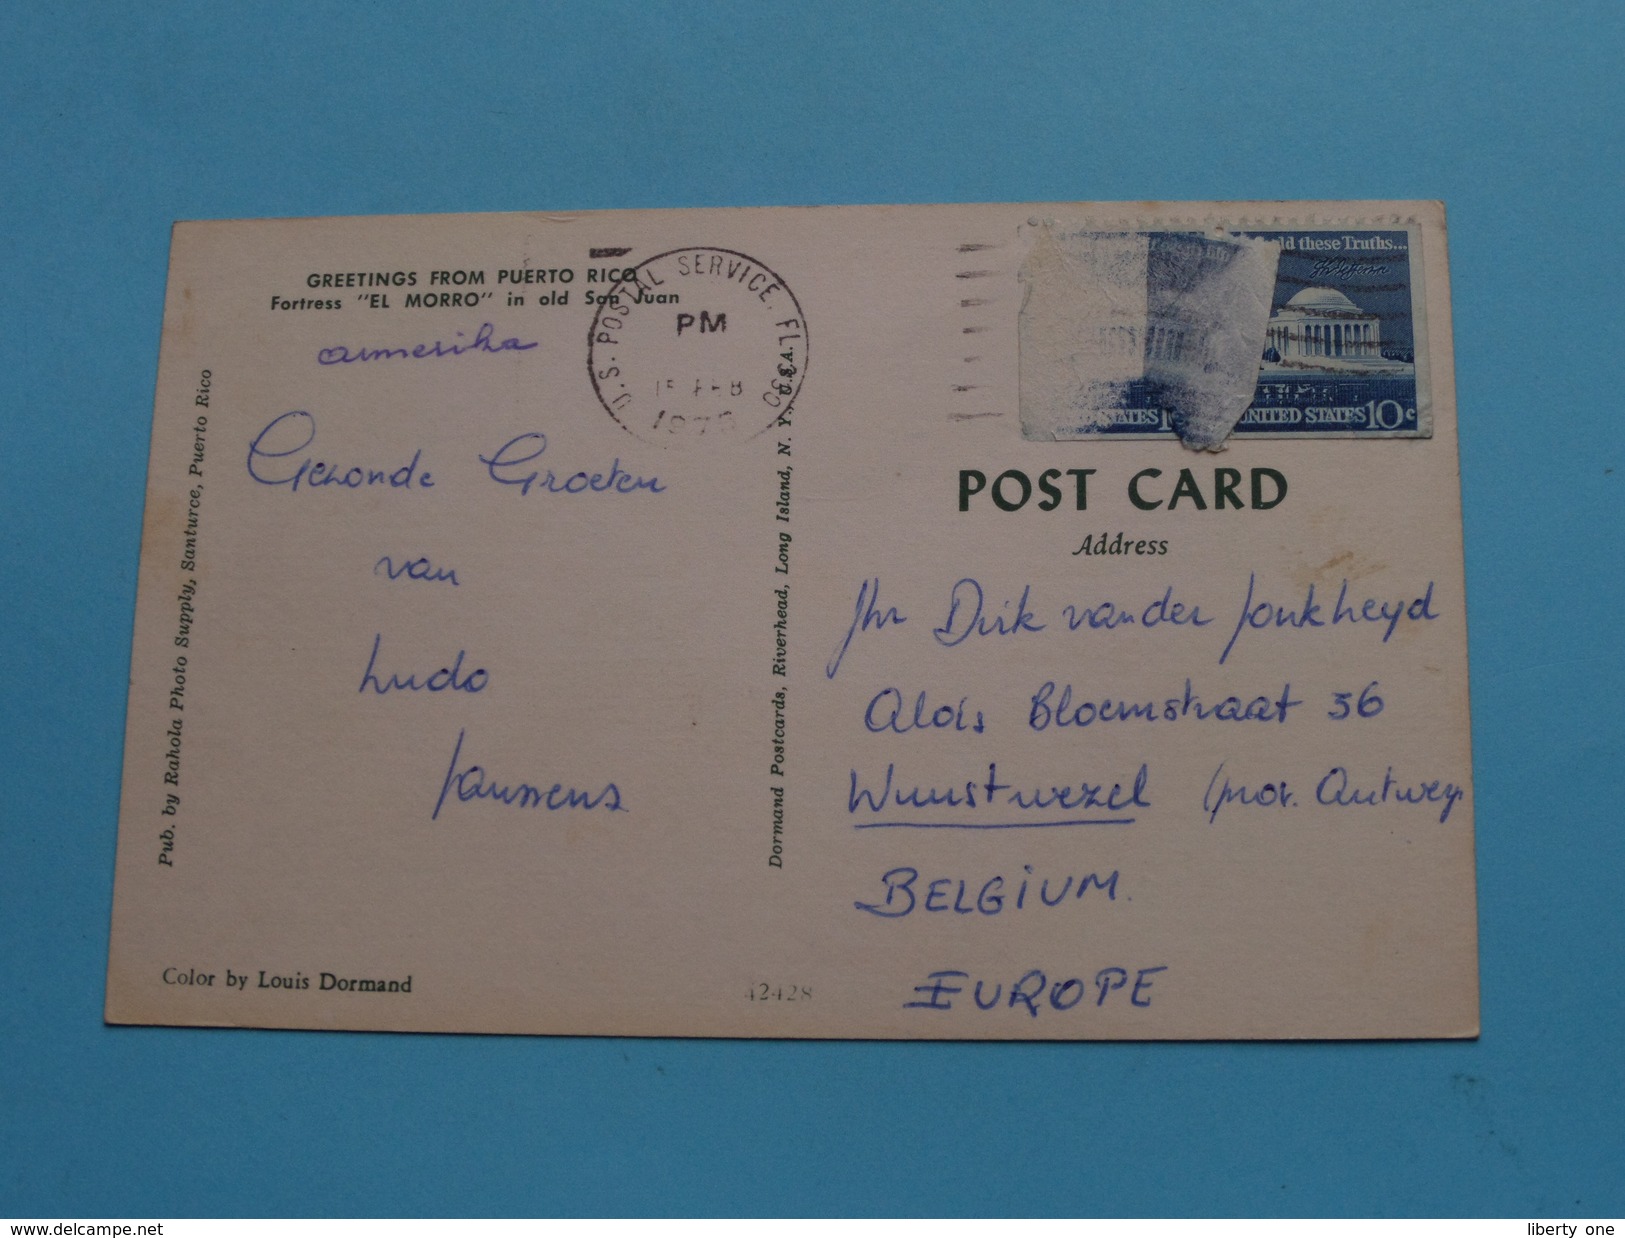 GREETINGS FROM PUERTO RICO
Fortress "EL MORRO" in old San Juan
amerika
Gezonde Groeten
van
Ludo
Janssens
Pub. by Rahola Photo Supply, Santurce, Puerto Rico
Color by Louis Dormand
U.S. POSTAL SERVICE, FL
PM
FEB
Dormand Postcards, Riverhead, Long Island, N. Y., U.S.A.
42428
these Truths...
UNITED STATES 10c
POST CARD
Address
Jhr Dirk van der Jonkheyd
Alois Bloemstraat 36
Wuustwezel (prov. Antwerp
BELGIUM.
EUROPE
delcampe.net
liberty one